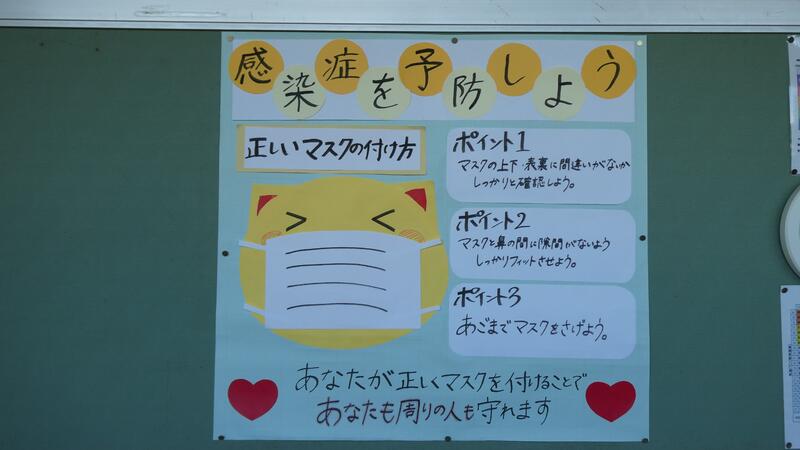 感染症を予防しよう
正しいマスクの付け方
ポイント1
マスクの上下・表裏に間違いがないか
しっかりと確認しよう。
ポイント2
マスクと鼻の間に隙間がないよう
しっかりフィットさせよう。
ポイント3
あごまでマスクをさげよう。
あなたが正しくマスクを付けることで
あなたも周りの人も守れます